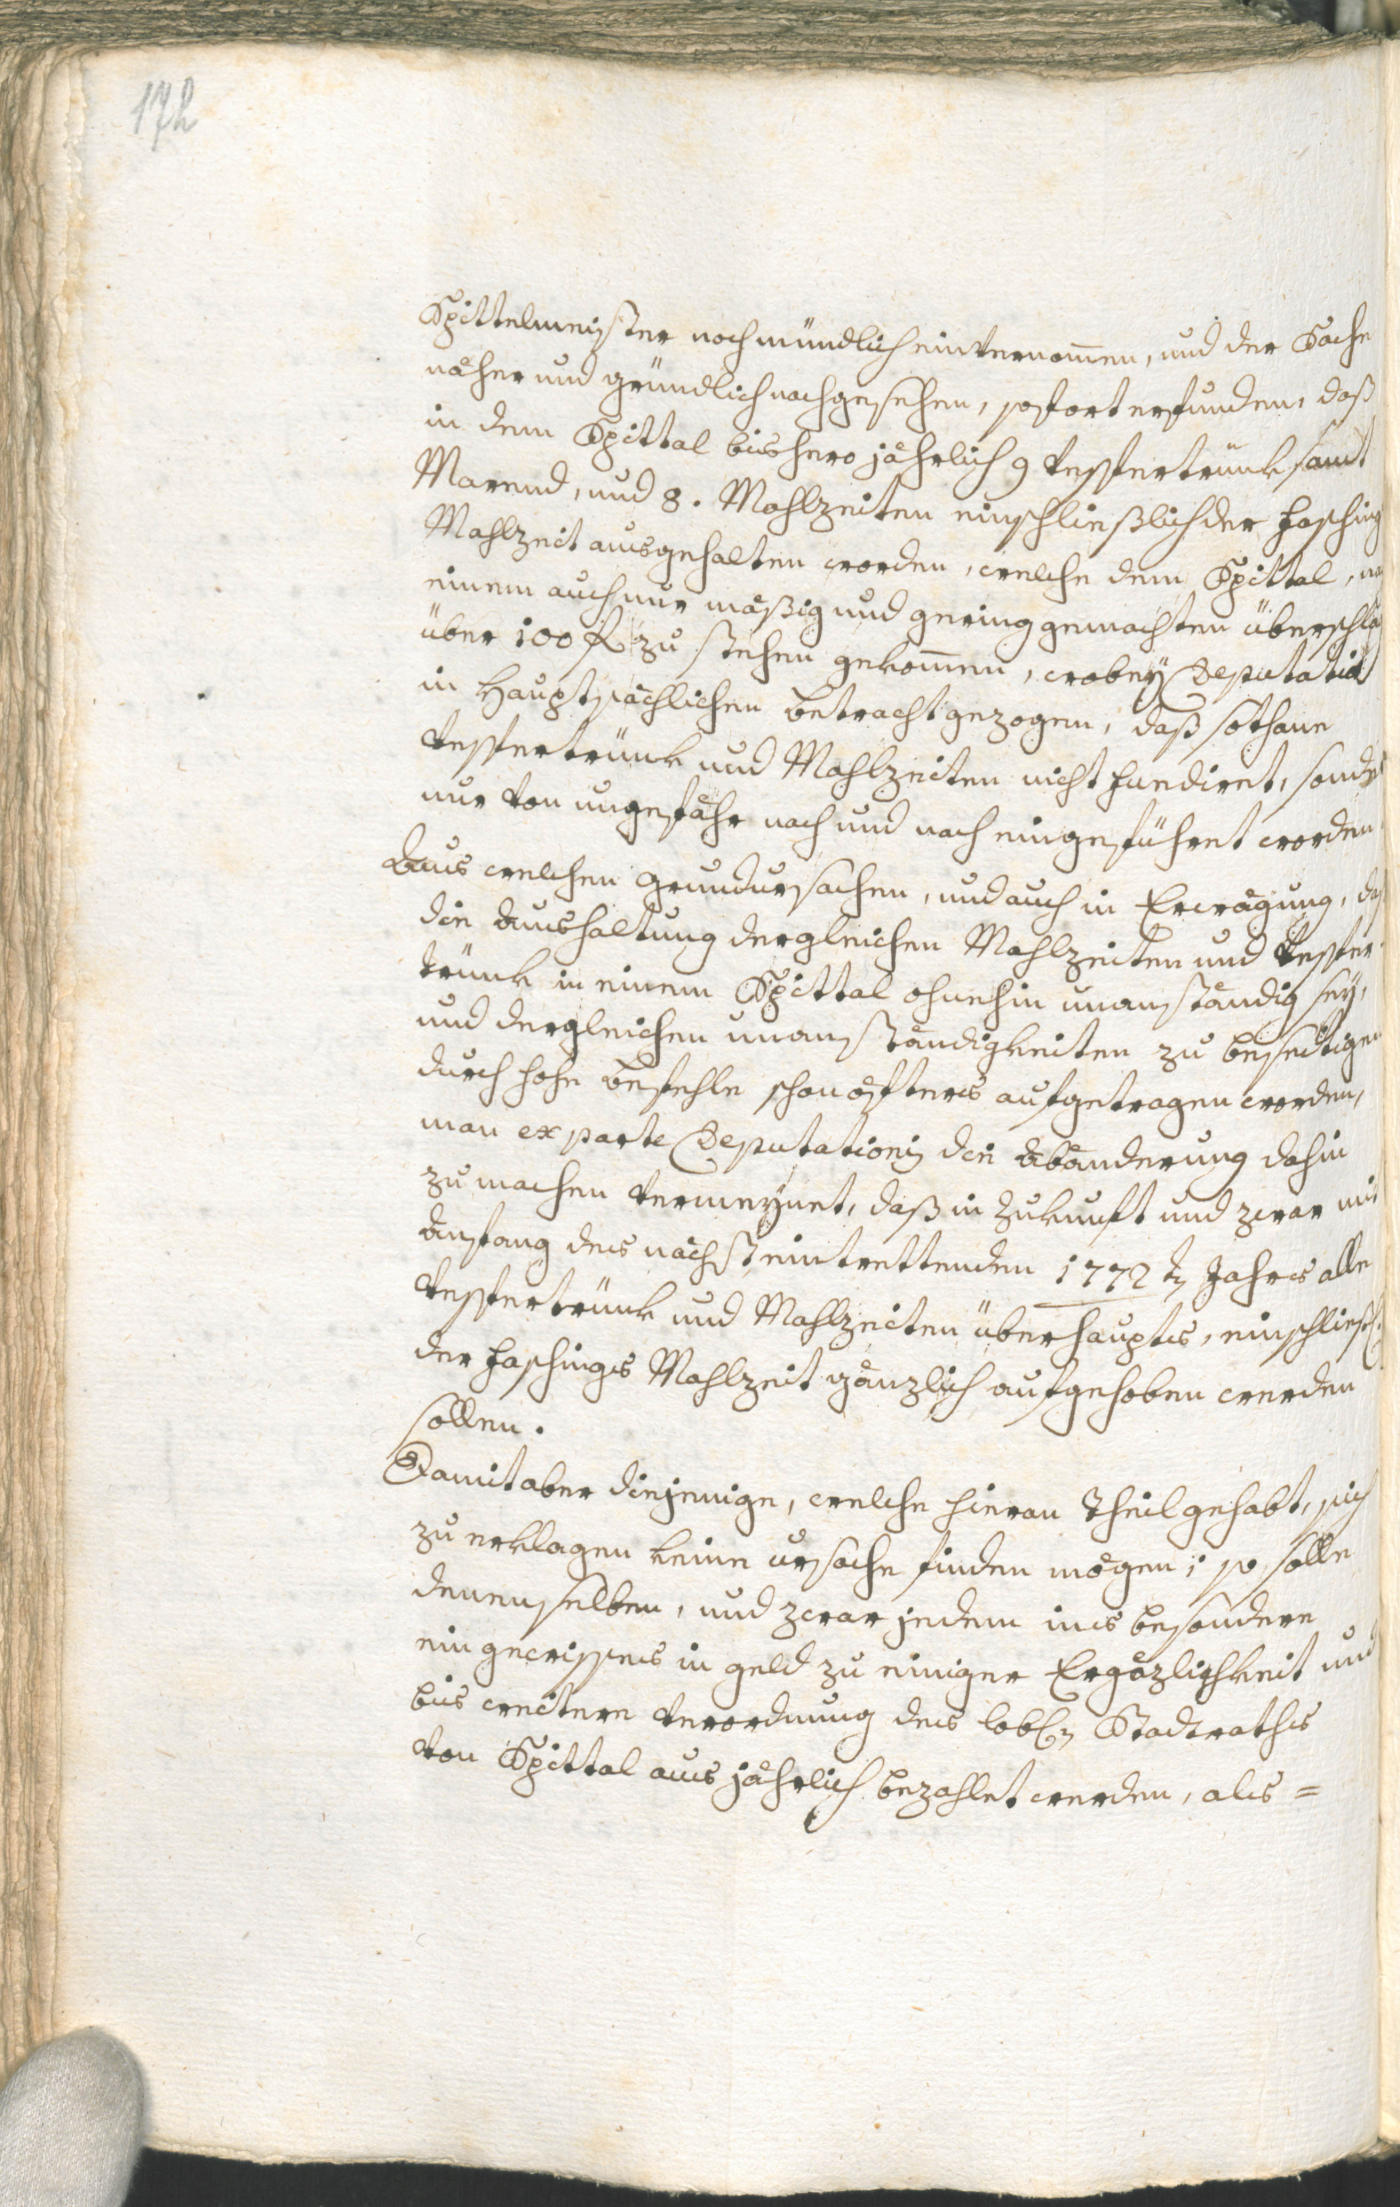 172
Spittelmeister noch mündlich einvernom̅en, und der Sache
näher und gründlich nachgesehen, sofort erfunden, daß
in dem Spittal bishero jährlich 9 Vespertrünk samt
Marend, und 8. Mahlzeiten einschließlich der Fasching
Mahlzeit ausgehalten worden, welche dem Spittal,
einem auch nur mäßig und gering gemachten überschla
über 100 f zu stehen gekom̅en, wobey Deputatio
in Hauptsächlichen betracht gezogen, daß sothane
Vespertrünk und Mahlzeiten nicht fundirt, sonder
nur von ungefähr nach und nach eingeführet worden
Aus welchen grundursachen, und auch in Erwägung, daß
die Aushaltung dergleichen Mahlzeiten und Vesper
trünk in einem Spittal ohnehin unanständig sey,
und dergleichen unanständigkeiten zu beseitigen
durch hohe befehle schon öfters aufgetragen worden,
man ex parte Deputationis die Abänderung dahin
zu machen vermeynet, daß in Zukunft und zwar mit
Anfang des nächst eintrettenden 1772 tn Jahrs alle
Vespertrünk und Mahlzeiten überhaupts, einschliesl.
der Faschings Mahlzeit gänzlich aufgehoben werden
sollen.
Damit aber diejenige, welche hieran Theil gehabt, sich
zu erklagen keine ursache finden mögen; so solle
denenselben, und zwar jedem ins besondere
ein gewisses in geld zu einiger Ergözlichkeit und
bis weitere Verordnung des lobln Stadtraths
von Spittal aus jährlich bezahlet werden, als =